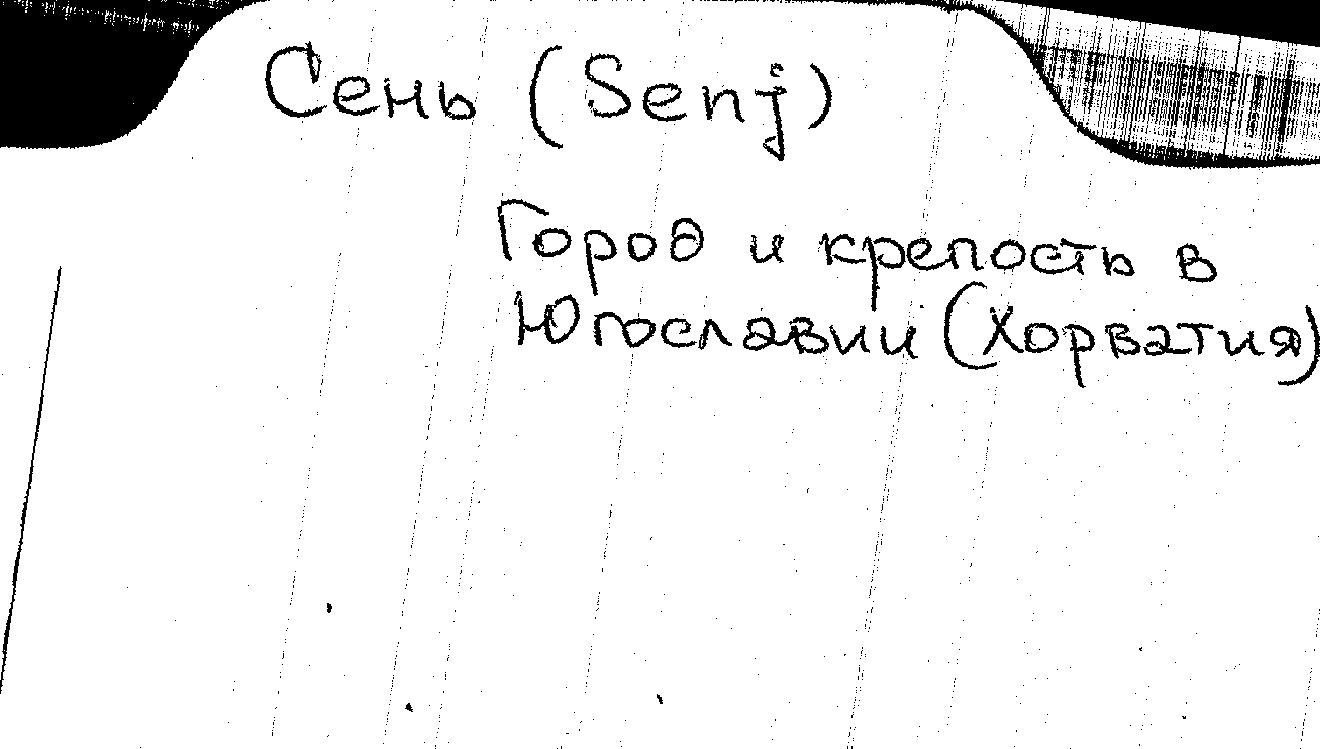 Сень (Senj)
Город и крепость в
Югославии (Хорватия)